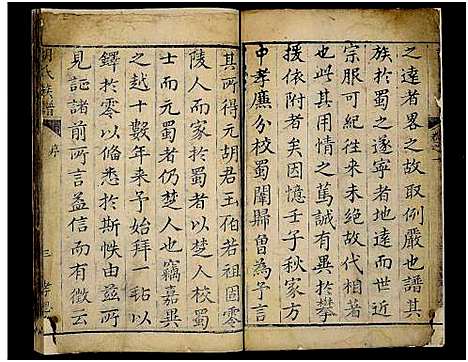 之達者畧之故取例嚴也譜其
族於蜀之遂寧者地遠而世近
宗服可紀徃來不故代相著
也此其用情之篤誠有異於攀
援依附者矣因憶壬子秋家方
中孝廉分校蜀闈歸曾為予言
其所得元胡君王伯若祖固零
陵人而家於蜀者以楚人校蜀
士而元蜀者仍楚人也竊嘉異
之越十數年来予始拜一玷以
鐸於零以脩悉於斯帙由茲所
見証諸前所言益信而有徵云
胡氏族譜
序
三
孝思